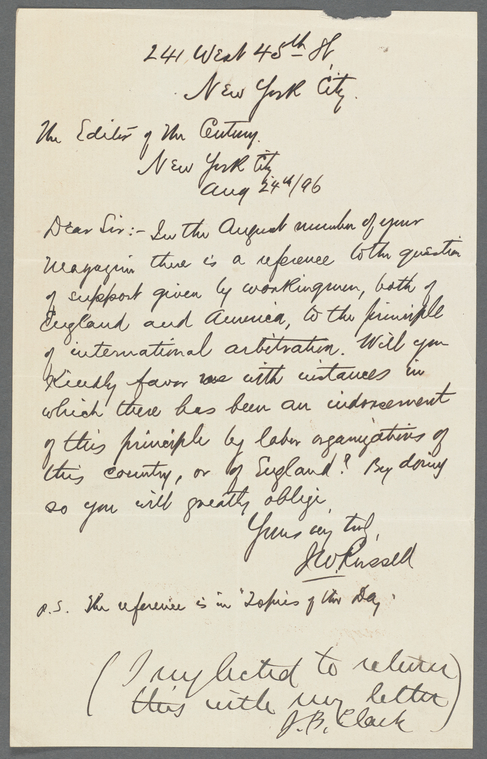 241 West 45th St,
New York City.
The Editor of The Century.
New York City
Aug 24th/96
Dear Sir:- In the August number of your
Magazine there is a reference to the question
of support given by workingmen, both of
England and America, to the principle
of international arbitration. Will you
Kindly favor me with instances in
which there has been an indorsement
of this principle by labor organizations of
this country, or of England? By doing
so you will greatly oblige,
Yours very truly,
J.W. Russell
P.S. The reference is in "Topics of the Day"
(I neglected to return
this with my letter)
J. B. Clark